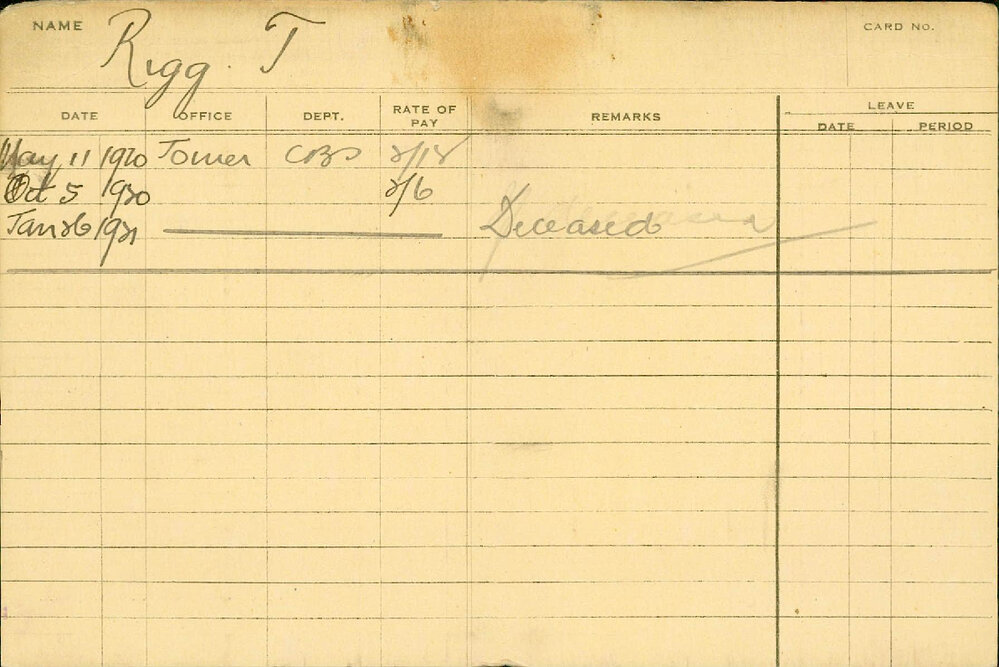 NAME Rigg. T CARD NO.
DATE OFFICE DEPT. RATE OF PAY REMARKS LEAVE
DATE PERIOD
May 11 1920 Tower
Oct 5 1920 2/6
Jan 26 1921 Deceased